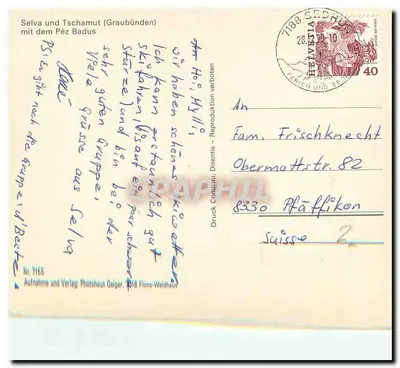 Selva und Tschamut (Graubünden)
mit dem Péz Badus
Hoi, Mylli,
wir haben schönes Skiwetter.
Ich kann erstaunlich gut
skifahren, (bis auf ein paar schwere
Stürze) und bin bei der
sehr guten Gruppe.
Viele Grüsse aus Selva
PS: Es gibt noch die Gruppe: d'Beste.
Nr. 7188
Aufnahme und Verlag: Photohaus Geiger, 7018 Flims-Waldhaus
Druck Condrau, Disentis – Reproduktion verboten
7188 SEDRUN
HELVETIA
40
An
Fam. Frischknecht
Obermattstr. 82
8330 Pfäffikon
Suisse